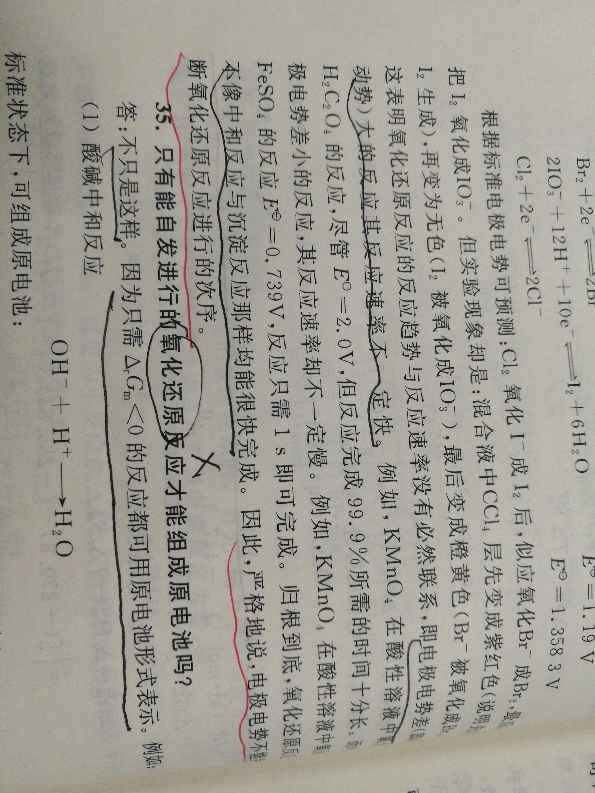 Br₂+2e⁻⇌2Br
E⊖=1.19 V
2IO₃⁻+12H⁺+10e⁻⇌I₂+6H₂O
E⊖=1.358 3 V
Cl₂+2e⁻⇌2Cl⁻
根据标准电极电势可预测:Cl₂ 氧化 I⁻成 I₂ 后,似应氧化Br⁻成Br₂,最
把 I₂ 氧化成IO₃⁻。但实验现象却是:混合液中CCl₄ 层先变成紫红色(说明
I₂ 生成),再变为无色(I₂ 被氧化成IO₃⁻),最后变成橙黄色(Br⁻被氧化成
这表明氧化还原反应的反应趋势与反应速率没有必然联系,即电极电势差(
动势)大的反应其反应速率不一定快。例如,KMnO₄ 在酸性溶液中
H₂C₂O₄ 的反应,尽管 E⊖=2.0V,但反应完成99.9%所需的时间十分长。
极电势差小的反应,其反应速率却不一定慢。例如,KMnO₄ 在酸性溶液中
FeSO₄ 的反应 E⊖=0.739V,反应只需 1 s 即可完成。归根到底,氧化还原反
不像中和反应与沉淀反应那样均能很快完成。因此,严格地说,电极电势不
断氧化还原反应进行的次序。
35. 只有能自发进行的氧化还原反应才能组成原电池吗?
答:不只是这样。因为只需 ΔrGm<0 的反应都可用原电池形式表示。例如:
(1) 酸碱中和反应
OH⁻ + H⁺ ⟶ H₂O
标准状态下,可组成原电池: